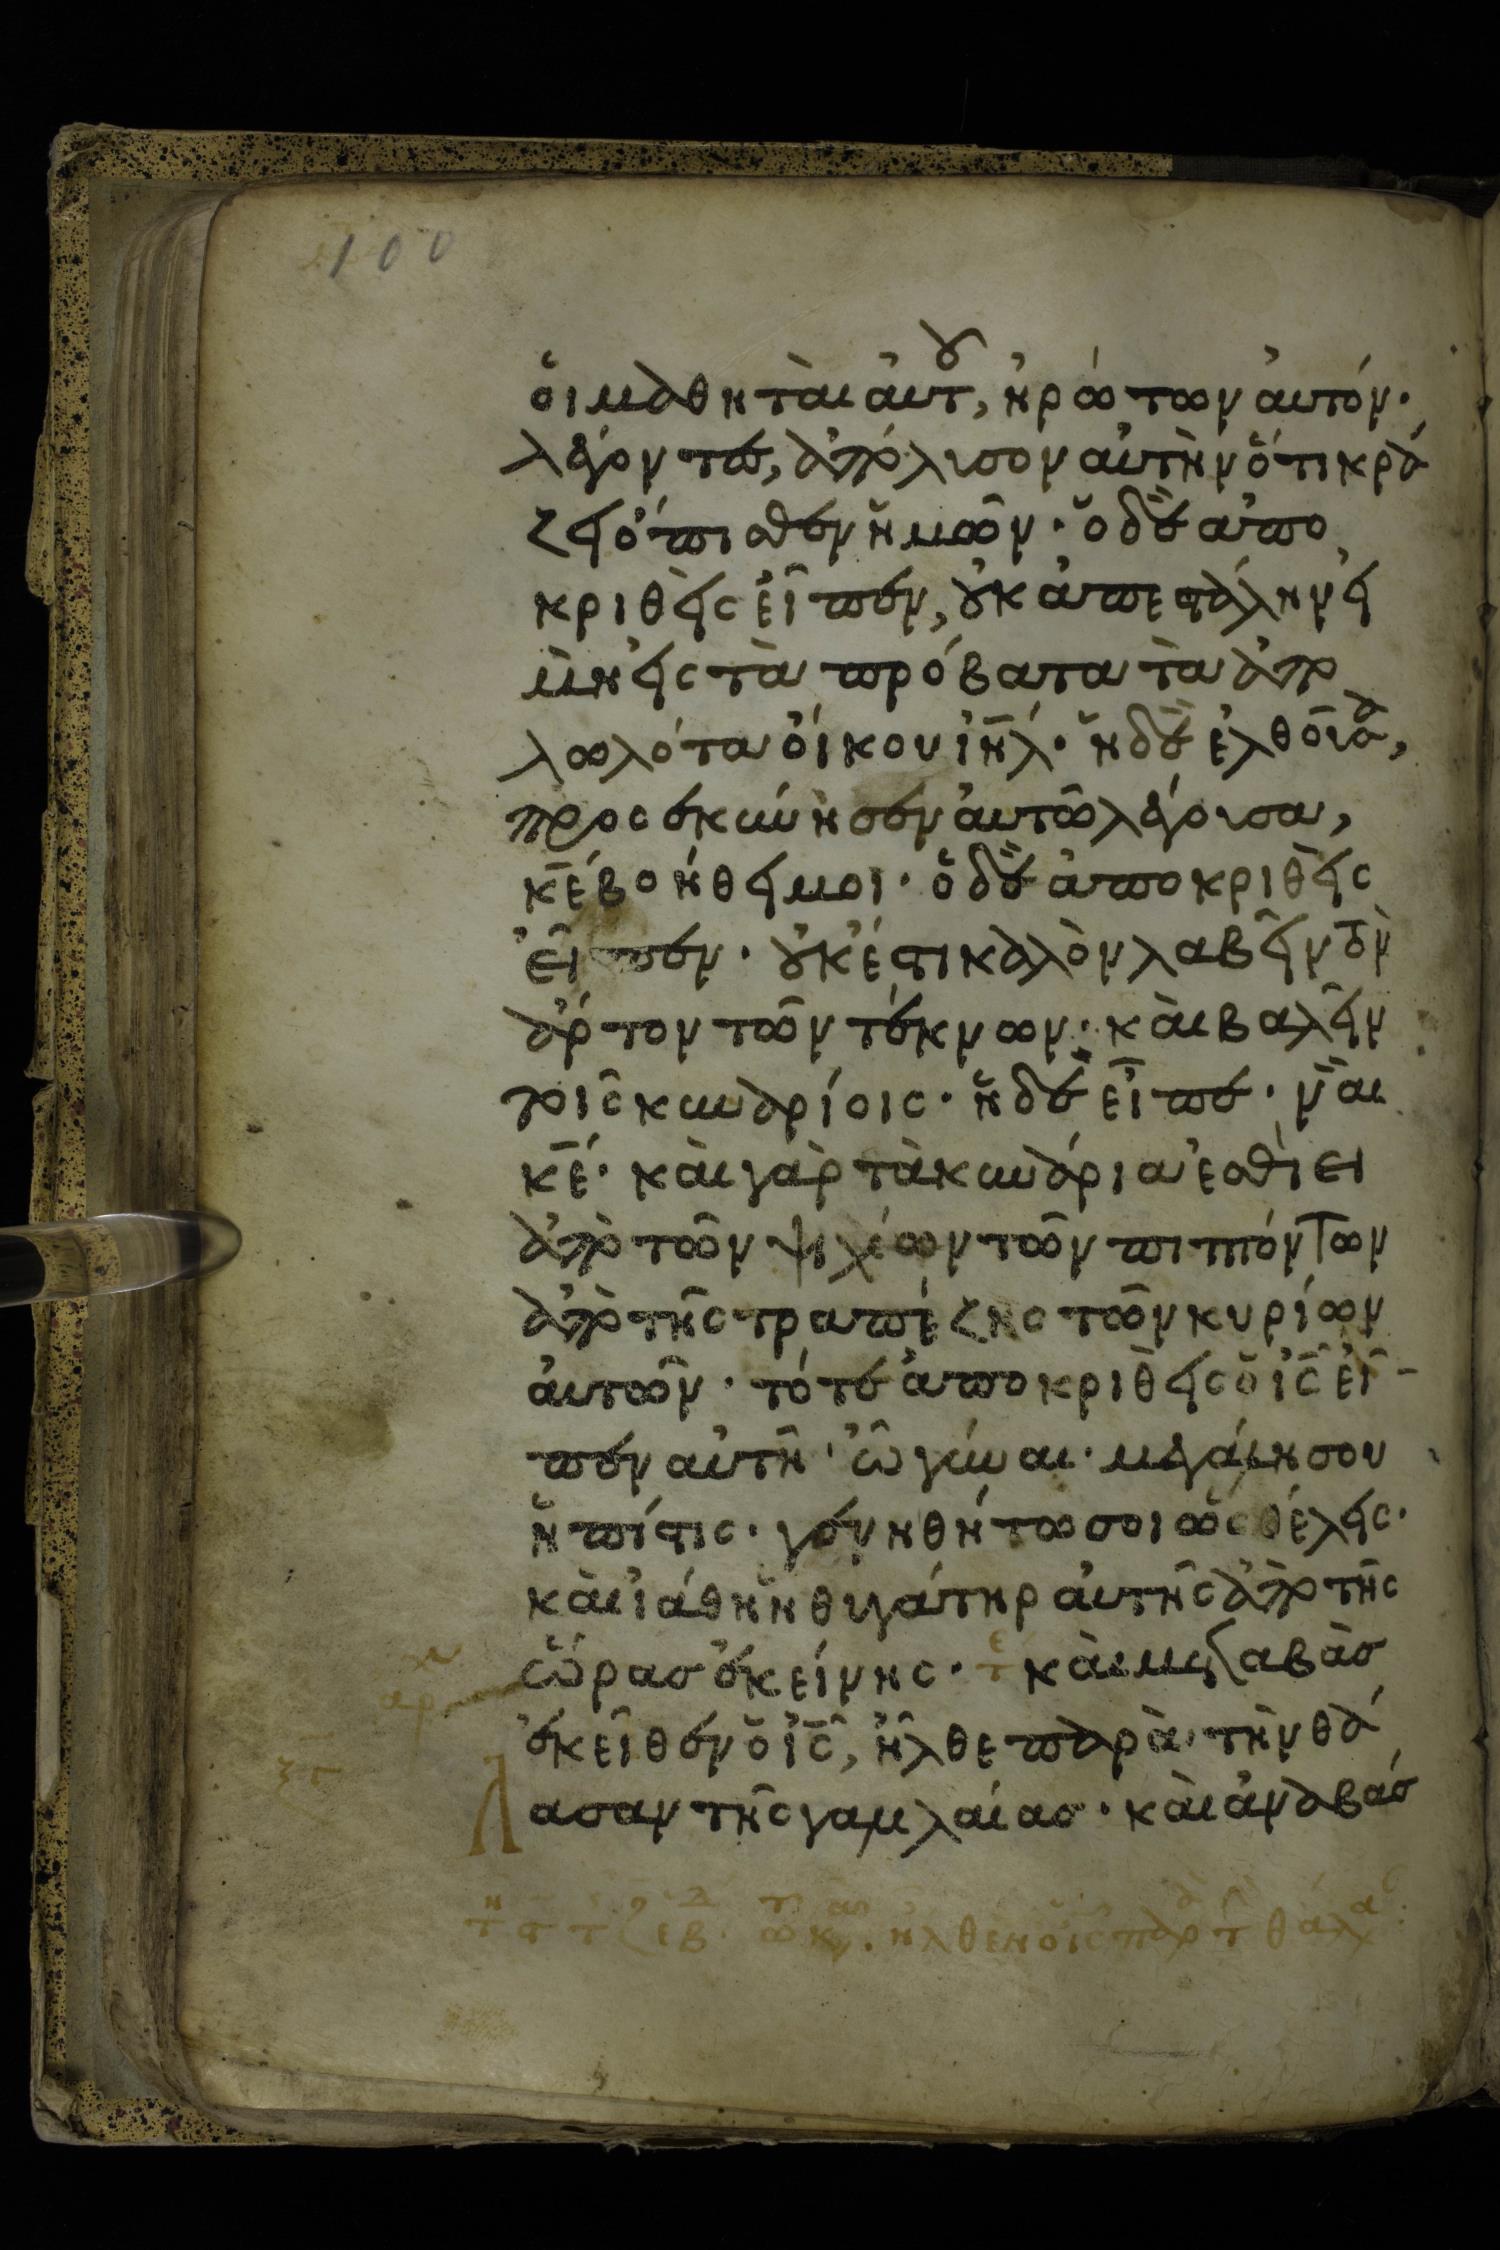 100
ὅι μαθηταὶ ἀυτοῦ, ἠρώτων ἀυτόν·
λέγοντες, ἀπόλυσον ἀυτὴν ὅτι κρά
ζει ὄπισθεν ἡμῶν· ὁ δὲ ἀπο
κριθεὶς εἶπεν, οὐκ ἀπεστάλην εἰ
μὴ εἰς τὰ πρόβατα τὰ ἀπο
λωλότα οἴκου ἰη̅λ· ἡ δὲ ἐλθοῦσα,
προσεκύνησεν ἀυτῶ λέγουσα,
κ̅ε βοήθει μοι· ὁ δὲ ἀποκριθεὶς
εἶπεν· οὐκ ἔστι καλὸν λαβεῖν τὸν
ἄρτον τῶν τέκνων· καὶ βαλεῖν
τοῖς κυναρίοις· ἡ δὲ εἶπε· ναὶ
κ̅ε· καὶ γὰρ τὰ κυνάρια ἐσθίει
ἀπὸ τῶν ψιχίων τῶν πιπτόντων
ἀπὸ τῆς τραπέζης τῶν κυρίων
ἀυτῶν· τότε ἀποκριθεὶς ὁ ι̅ς εἶ-
πεν αὐτῆ· ὦ γύναι· μεγάλη σου
ἡ πίστις· γενηθήτω σοι ὡς θέλεις·
καὶ ἰάθη ἡ θυγάτηρ ἀυτῆς ἀπὸ τῆς
ὥρας ἐκείνης· τε καὶ μεταβὰς
αρχ
ἐκεῖθεν ὁ ι̅ς, ἦλθε παρὰ τὴν θά
λασαν τῆς γαλιλαίας· καὶ ἀναβὰς
ἦλθεν ὁ ι̅ς παρ τ θαλα